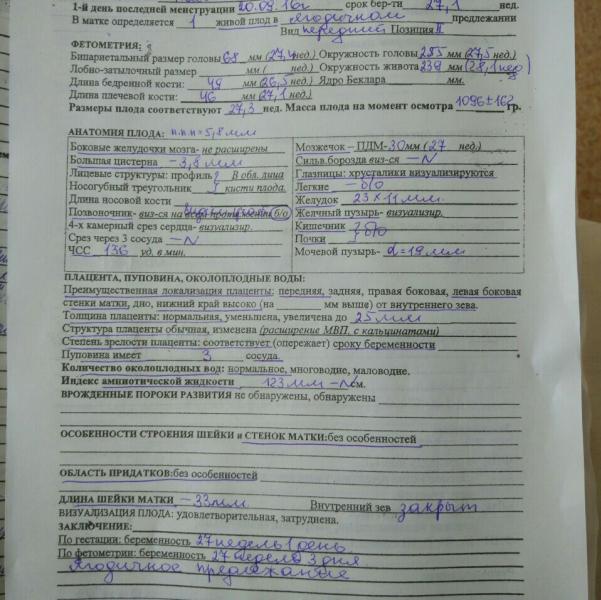 1-й день последней менструации 20.09.16г срок бер-ти 27,1 нед.
В матке определяется 1 живой плод в ягодичном предлежании
Вид передний Позиция II
ФЕТОМЕТРИЯ:
Бипариетальный размер головы 68 мм (27,4 нед.) Окружность головы 255 мм (27,5 нед.)
Лобно-затылочный размер мм ( нед.) Окружность живота 239 мм (28,1 нед)
Длина бедренной кости 49 мм (26,5 нед.) Ядро Беклара мм.
Длина плечевой кости 46 мм (27,1 нед.)
Размеры плода соответствуют 27,3 нед. Масса плода на момент осмотра 1096±162 гр.
АНАТОМИЯ ПЛОДА: п.п.п = 5,8 мм
Боковые желудочки мозга- не расширены
Мозжечок – ПДМ- 30 мм (27 нед.)
Большая цистерна – 3,8 мм
Сильв.борозда виз-ся – N
Лицевые структуры: профиль В обл. лица
Глазницы: хрусталики визуализируются
Носогубный треугольник кисти плода.
Легкие – б/о
Длина носовой кости
Желудок 23 × 11 мм.
Позвоночник- виз-ся на всем протяжении б/о
Желчный пузырь- визуализир.
4-х камерный срез сердца – визуализир.
Кишечник
Срез через 3 сосуда – N
Почки б/о
ЧСС 136 уд. в мин.
Мочевой пузырь- d = 19 мм
ПЛАЦЕНТА, ПУПОВИНА, ОКОЛОПЛОДНЫЕ ВОДЫ:
Преимущественная локализация плаценты: передняя, задняя, правая боковая, левая боковая
стенки матки, дно, нижний край высоко (на мм выше) от внутреннего зева.
Толщина плаценты: нормальная, уменьшена, увеличена до 25 мм
Структура плаценты обычная, изменена (расширение МВП, с кальцинатами)
Степень зрелости плаценты: соответствует (опережает) сроку беременности
Пуповина имеет 3 сосуда.
Количество околоплодных вод: нормальное, многоводие, маловодие.
Индекс амниотической жидкости 123 мм – N см.
ВРОЖДЕННЫЕ ПОРОКИ РАЗВИТИЯ не обнаружены, обнаружены
ОСОБЕННОСТИ СТРОЕНИЯ ШЕЙКИ и СТЕНОК МАТКИ:без особенностей
ОБЛАСТЬ ПРИДАТКОВ:без особенностей
ДЛИНА ШЕЙКИ МАТКИ – 33 мм. Внутренний зев закрыт
ВИЗУАЛИЗАЦИЯ ПЛОДА: удовлетворительная, затруднена.
ЗАКЛЮЧЕНИЕ:
По гестации: беременность 27 недель 1 день
По фетометрии: беременность 27 недель 3 дня
Ягодичное предлежание